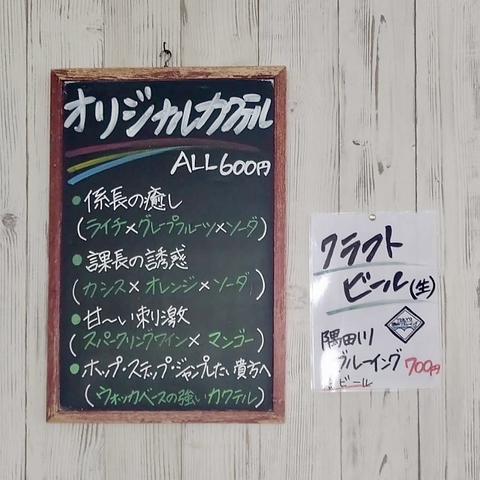 オリジナルカクテル
ALL 600円
・係長の癒し
(ライチ×グレープフルーツ×ソーダ)
・課長の誘惑
(カシス×オレンジ×ソーダ)
・甘〜い刺激
(スパークリングワイン×マンゴー)
・ホップ・ステップ・ジャンプしたい貴方へ
(ウォッカベースの強いカクテル)
クラフト
ビール(生)
隅田川
ブルーイング
700円
ビール